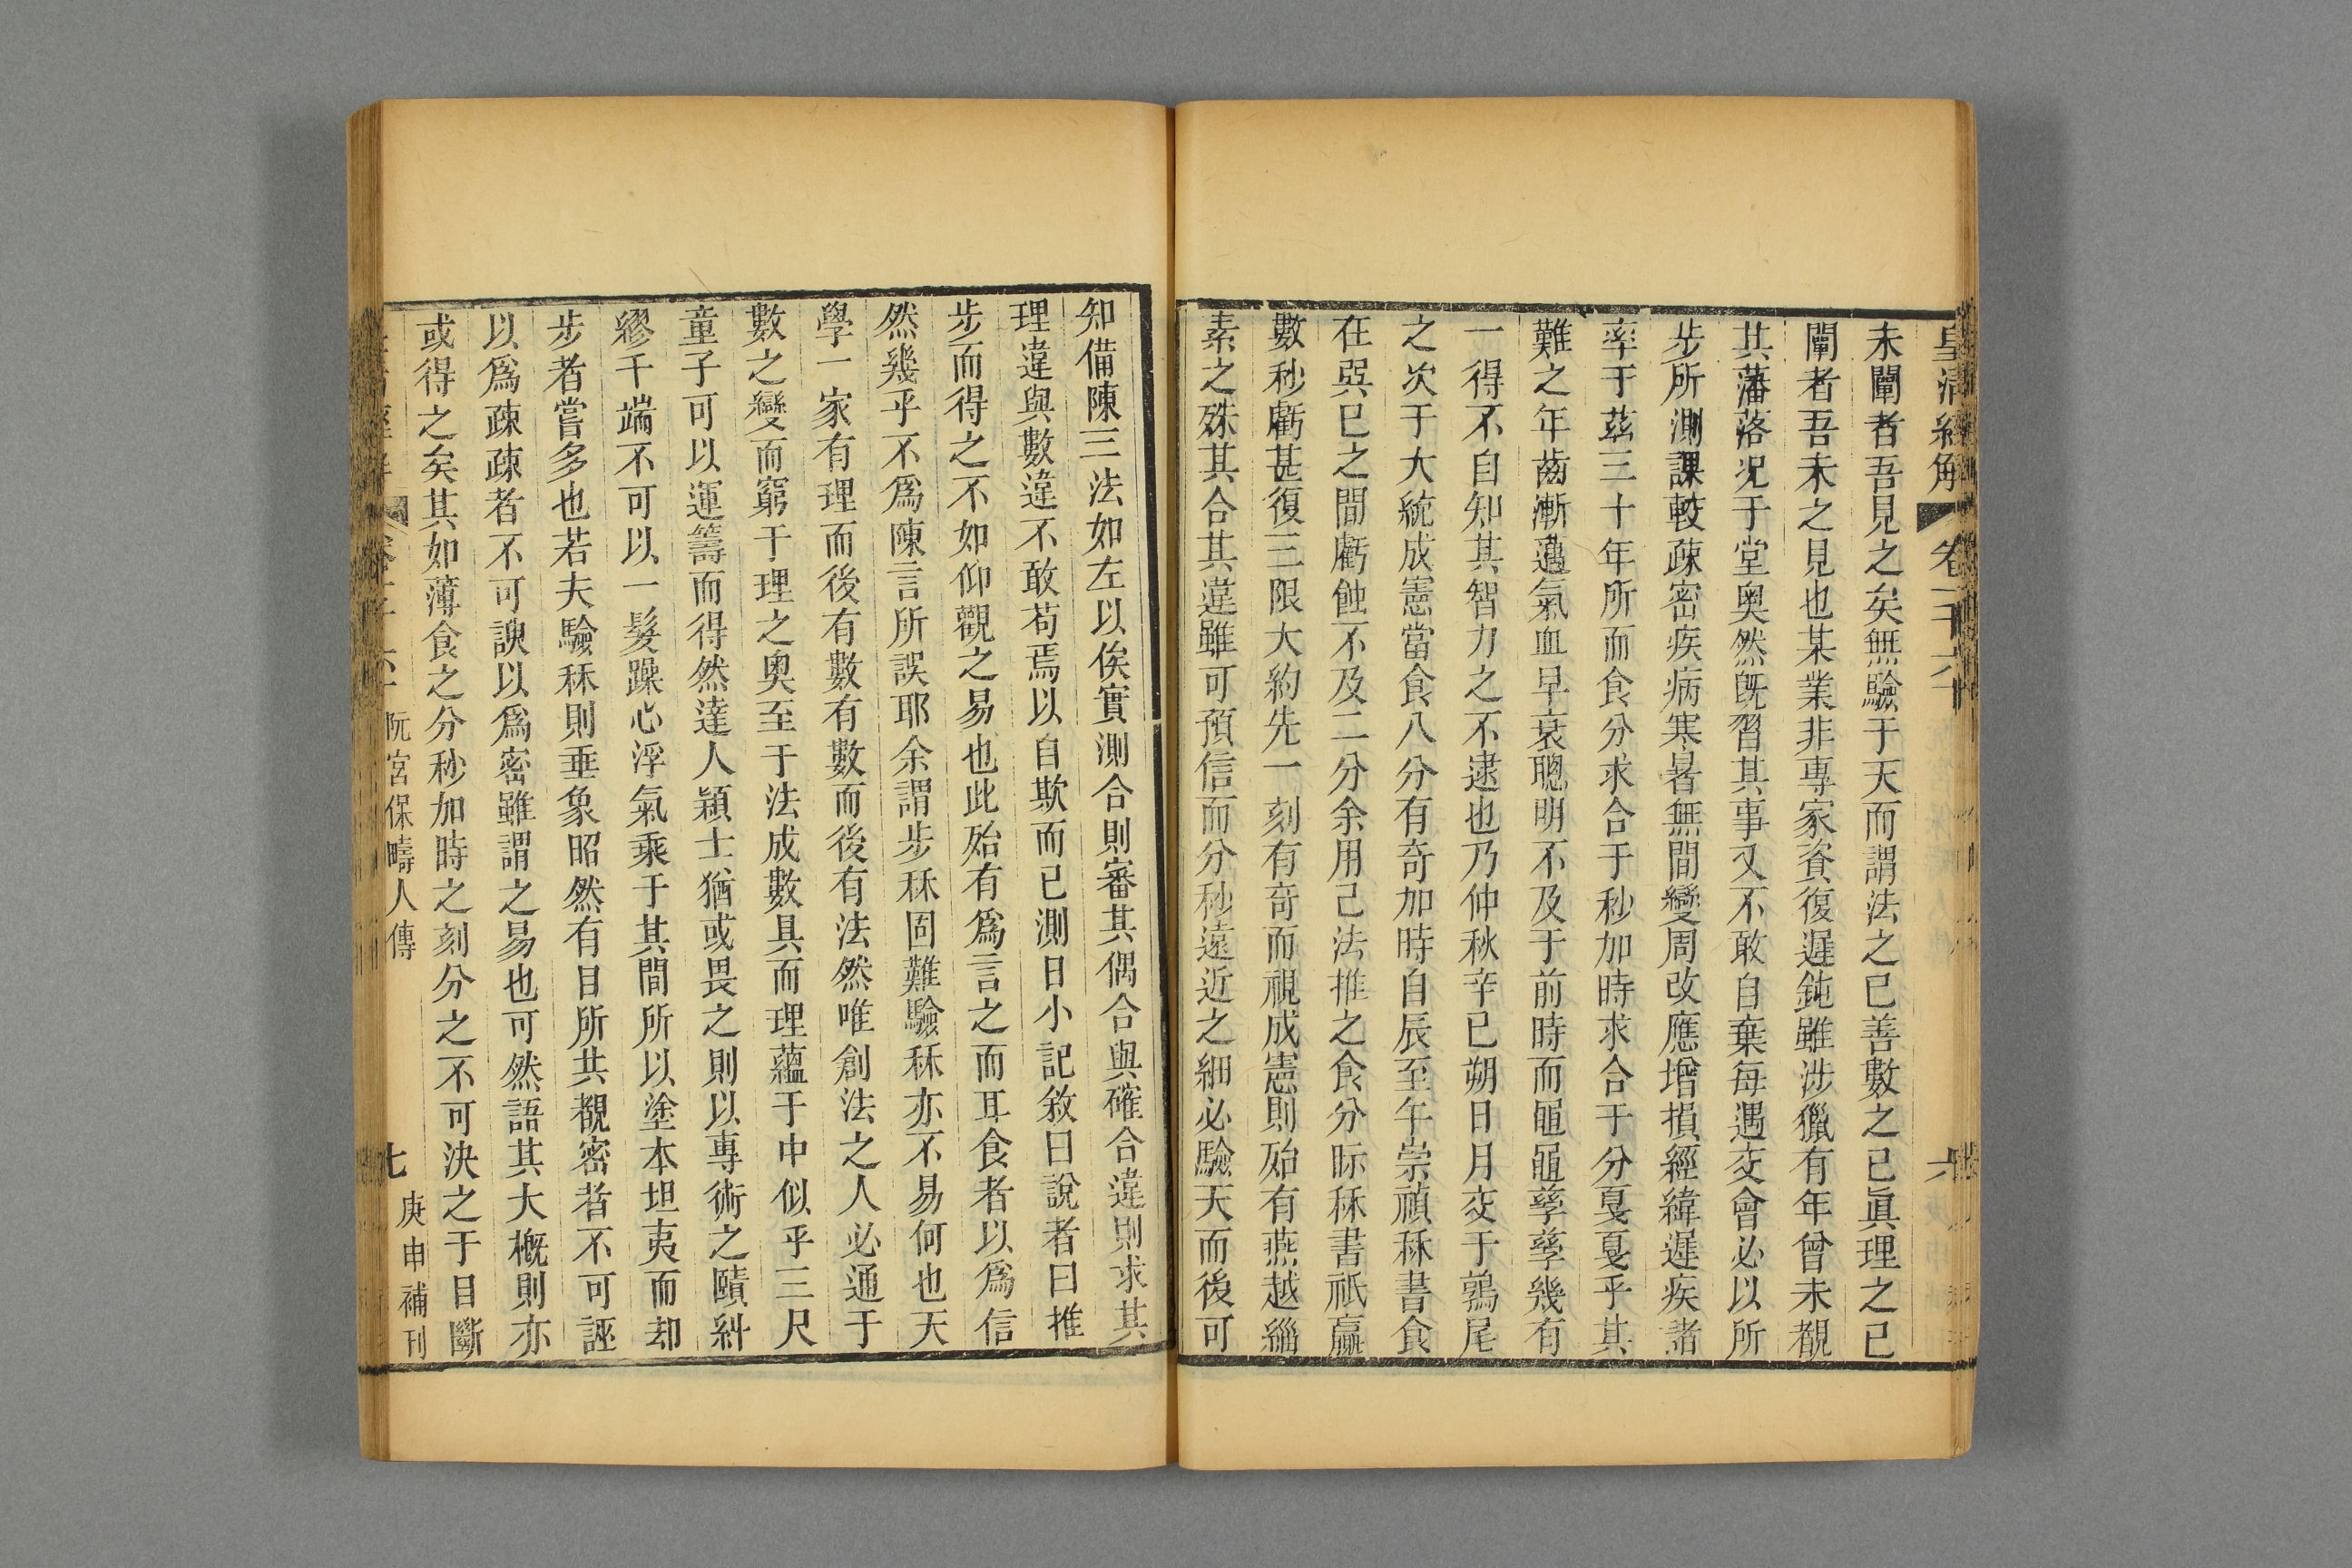 皇清經解 卷 六
未闡者吾見之矣無驗于天而謂法之已善數之已眞理之已
闡者吾未之見也某業非專家資復遲鈍雖涉獵有年曾未覩
其藩落况于堂奧然旣習其事又不敢自棄每遇交會必以所
步所測課較疎密疾病寒暑無間變周改應增損經緯遲疾諸
率于茲三十年所而食分求合于秒加時求合于分戛戛乎其
難之年齒漸邁氣血早衰聰明不及于前時而黽黽孳孳幾有
一得不自知其智力之不逮也乃仲秋辛巳朔日月交于鶉尾
之次于大統成憲當食八分有奇加時自辰至午崇禎秝書食
在巽巳之間虧蝕不及二分余用己法推之食分眎秝書祇贏
數秒虧甚復三限大約先一刻有奇而視成憲則殆有燕越緇
素之殊其合其違雖可預信而分秒遠近之細必驗天而後可
知備陳三法如左以俟實測合則審其偶合與確合違則求其
理違與數違不敢苟焉以自欺而已測日小記敘曰說者曰推
步而得之不如仰觀之易也此殆有爲言之而耳食者以爲信
然幾乎不爲陳言所誤耶余謂步秝固難驗秝亦不易何也天
學一家有理而後有數有數而後有法然唯創法之人必通于
數之變而窮于理之奧至于法成數具而理蘊于中似乎三尺
童子可以運籌而得然達人穎士猶或畏之則以專術之賾糾
繆千端不可以一髮躁心浮氣乘于其間所以塗本坦夷而却
步者嘗多也若夫驗秝則垂象昭然有目所共覩密者不可誣
以爲疎疎者不可諛以爲密雖謂之易也可然語其大槪則亦
或得之矣其如薄食之分秒加時之刻分之不可決之于目斷
阮宮保疇人傳 七 庚申補刊